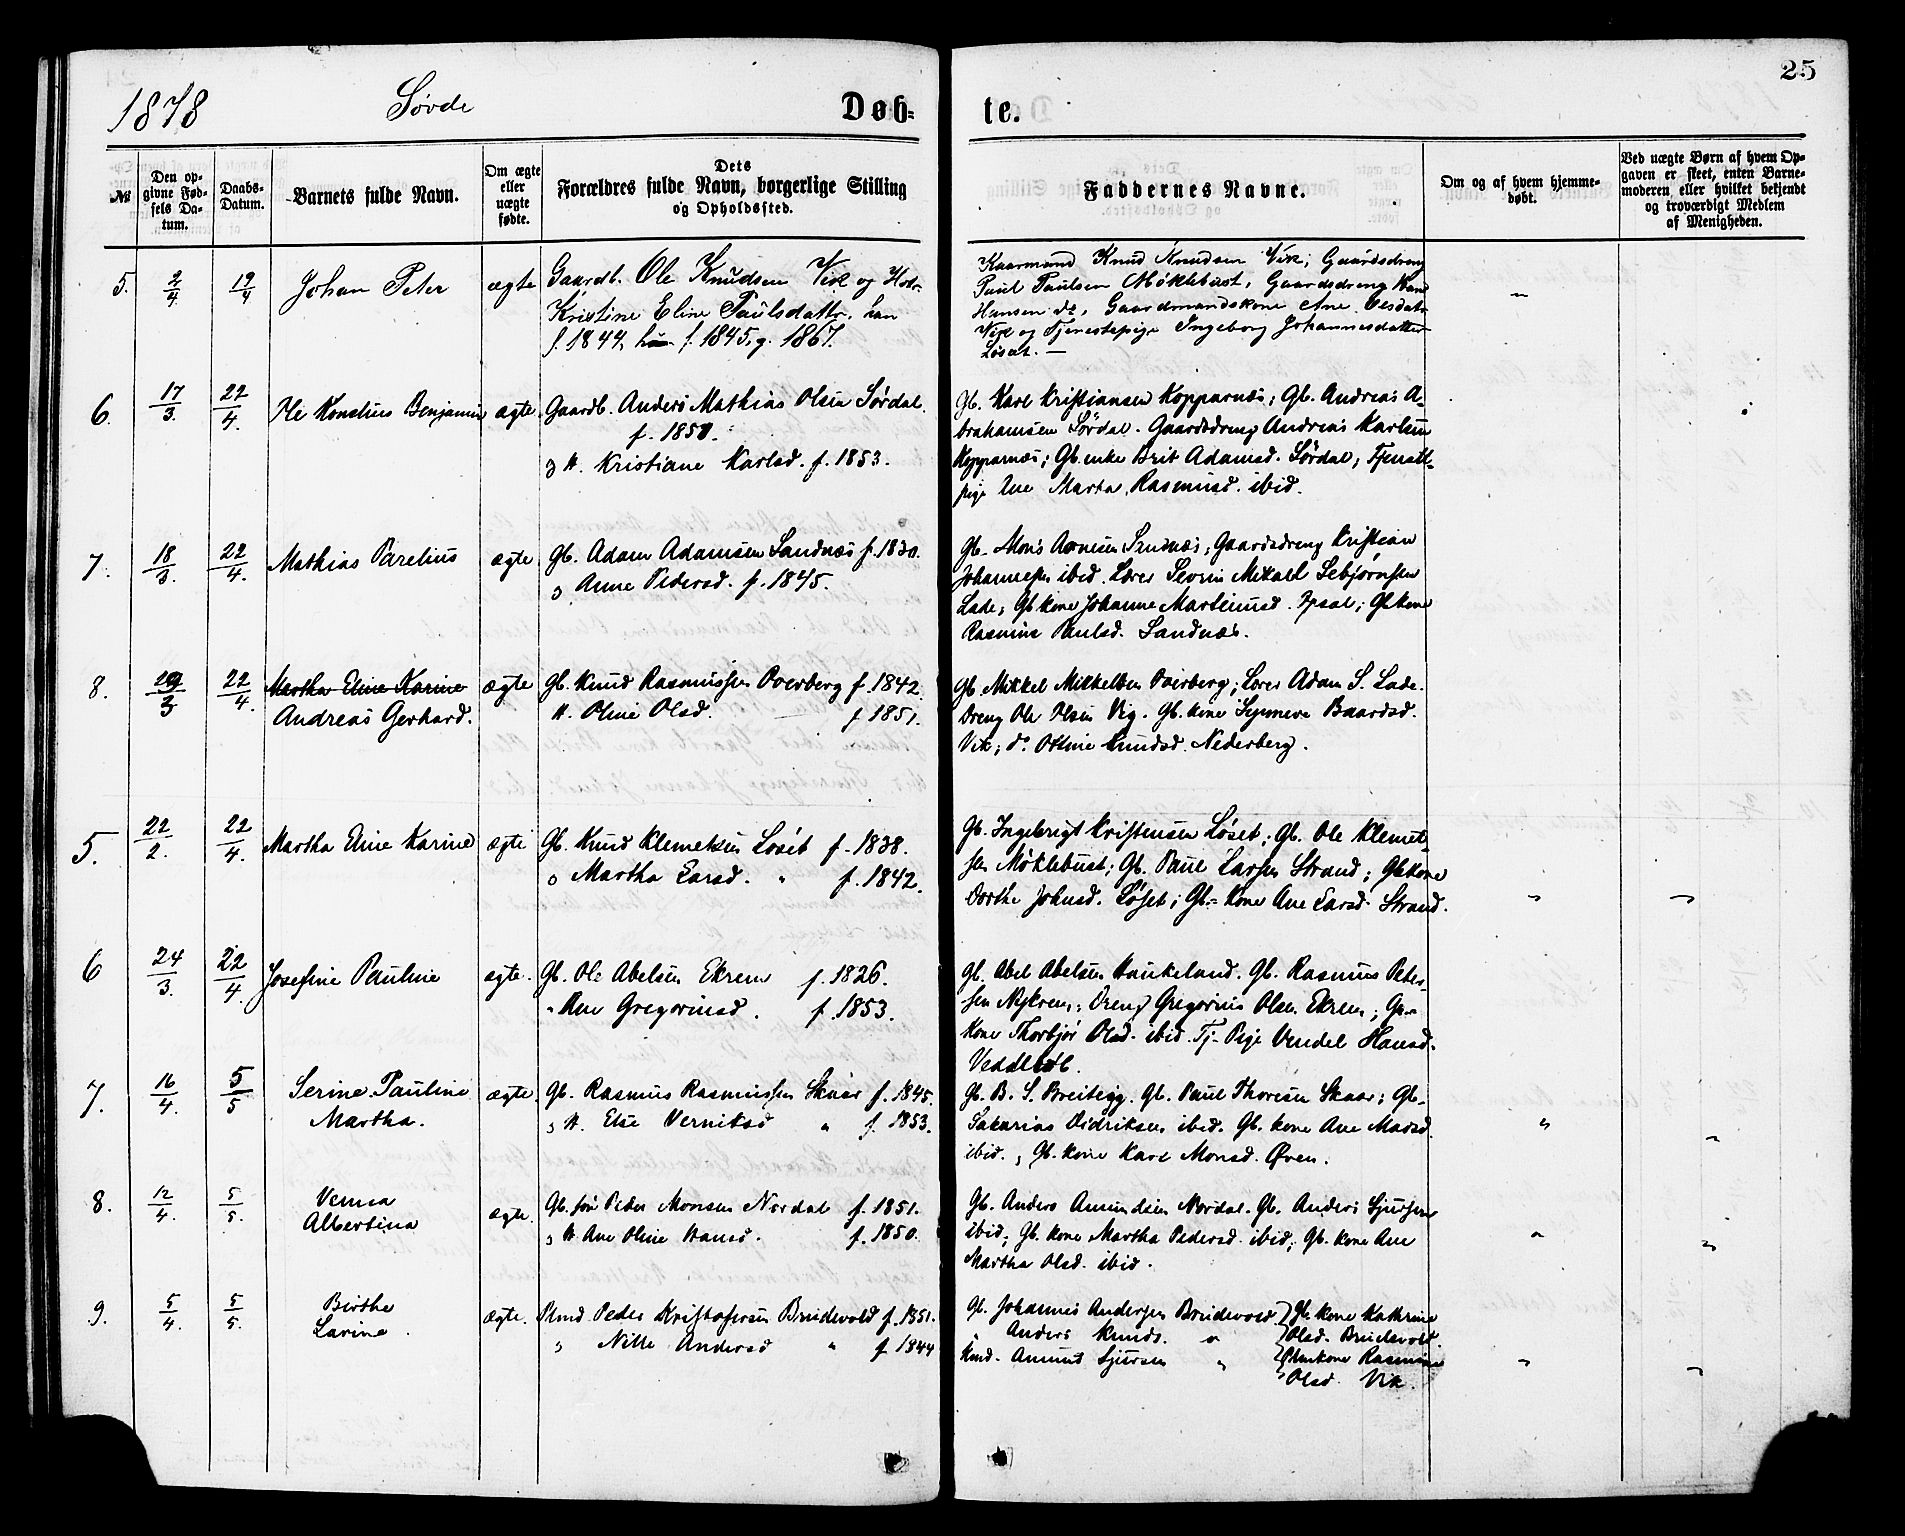 25
1878 Søvde Døb- te.
№
Den op-
givne Fød-
sels Da-
tum.
Daabs-
Datum.
Barnets fulde Navn.
Om ægte
eller
uægte
fødte.
Dets
Forældres fulde Navn, borgerlige Stilling
og Opholdssted.
Faddernes Navne.
Om og af hvem hjemme-
døbt.
Ved uægte Børn af hvem Op-
gaven er skeet, enten Barne-
moderen eller hvilket bekjendt
og troværdigt Medlem
af Menigheden.
5. 2/4 19/4 Johan Peter ægte Gaardb. Ole Knudsen Vik og Hstr.
Kristine Eline Paulsdattr. han
f. 1844, hun f. 1845, g. 1867.
Kaarmand Knud Knudsen Vik; Gaardsdreng
Paul Paulsen Møklebust, Gaardsdreng
Hansen do, Gaardmandskone Ane
Vik og Tjenestepige Ingeborg Johannesdatter
Løset. —
6. 17/3. 22/4. Ole Konelius Benjamin ægte Gaardb. Anders Mathias Olsen Sørdal.
f. 1850.
og H. Kristiane Karlsd. f. 1853.
Gb. Karl Kristiansen Kopparnæs; Gb. Andreas A-
brahamsen Sørdal. Gaardsdreng Andreas Karlsen
Kopparnæs; Gb. enke Brit Adamsd. Sørdal; Tjeneste-
pige Ane Marta Rasmusd. ibid.
7. 18/3. 22/4. Mathias Parelius ægte Gb. Adam Adamsen Sandnæs f. 1830.
og Anne Pedersd. f. 1845.
Gb. Mons Arnesen Sandnæs; Gaardsdreng Kristian
Johannessen ibid. Lærer Severin Mikael Sebjørnsen
Lade; Gb kone Johanne Martinusd. ; Gb kone
Rasmine Paulsd. Sandnæs.
8. 29/3 22/4. Martha Eline Karine
Andreas Gerhard. ægte Gb. Knud Rasmussen Overberg f. 1842.
H. Oline Olsd. f. 1851.
Gb. Mikkel Mikkelsen Overberg; Lærer Adam S. Lade.
Dreng Ole Olsen Vig. Gb. kone Synneve Baardsd.
Vik; do Oline Knudsd. Nederberg.
5. 22/2. 22/4. Martha Eline Karine ægte Gb. Knud Klemetsen Løset f. 1838.
og Martha Larsd. " f. 1842.
Gb. Ingebrigt Kristensen Løset; Gb. Ole Klemet-
sen Møklebust; Gb. Paul Larsen Strand; Gb kone
Dorthe Johnsd. Løset; Gb. kone Ane Larsd. Strand.
6 24/3. 22/4. Josefine Pauline ægte. Gb. Ole Abelsen Ekrem f. 1826.
" Ane Gregoriusd. f. 1853.
Gb. Abel Abelsen Haukeland. Gb. Rasmus Peter-
sen Nykrem; Dreng Gregorius Olsen Ekrem; Gb-
kone Thorbjør Olsd. ibid. Tj. Pige Vendel Hansd.
7. 16/4. 5/5 Serine Pauline
Martha. ægte. Gb. Rasmus Rasmussen Skaar f. 1845.
og H. Else Verniksd " f. 1853.
Gb. B. S. Breitegg. Gb. Paul Thoresen Skaar; Gb.
Sakarias Didriksen ibid. Gb. kone Ane Madsd.
ibid.; Gb. kone Kari Monsd. Øven.
8. 12/4. 5/5. Vernea
Albertina ægte. Gb. søn Peder Monsen Nordal f. 1851.
og H. Ane Oline Hansd. f. 1850.
Gb. Anders Amundsen Nordal. Gb. Anders Sjursen
ibid; Gb. kone Martha Pedersd. ibid; Gb. kone Ane
Martha Olsd. ibid.
9. 5/4. 5/5. Birthe
Larine. ægte. Kmd Peder Kristofersen Brudevold f. 1851.
og Nille Andersd " f. 1844
Gb. Johannes Andersen Brudevold } Gb. kone Kathrine
" Anders Knuds. " } Olsd. Brudevold.
Kmd. Amund Sjursen " } Kmkone Rasmine
Olsd. Vik.